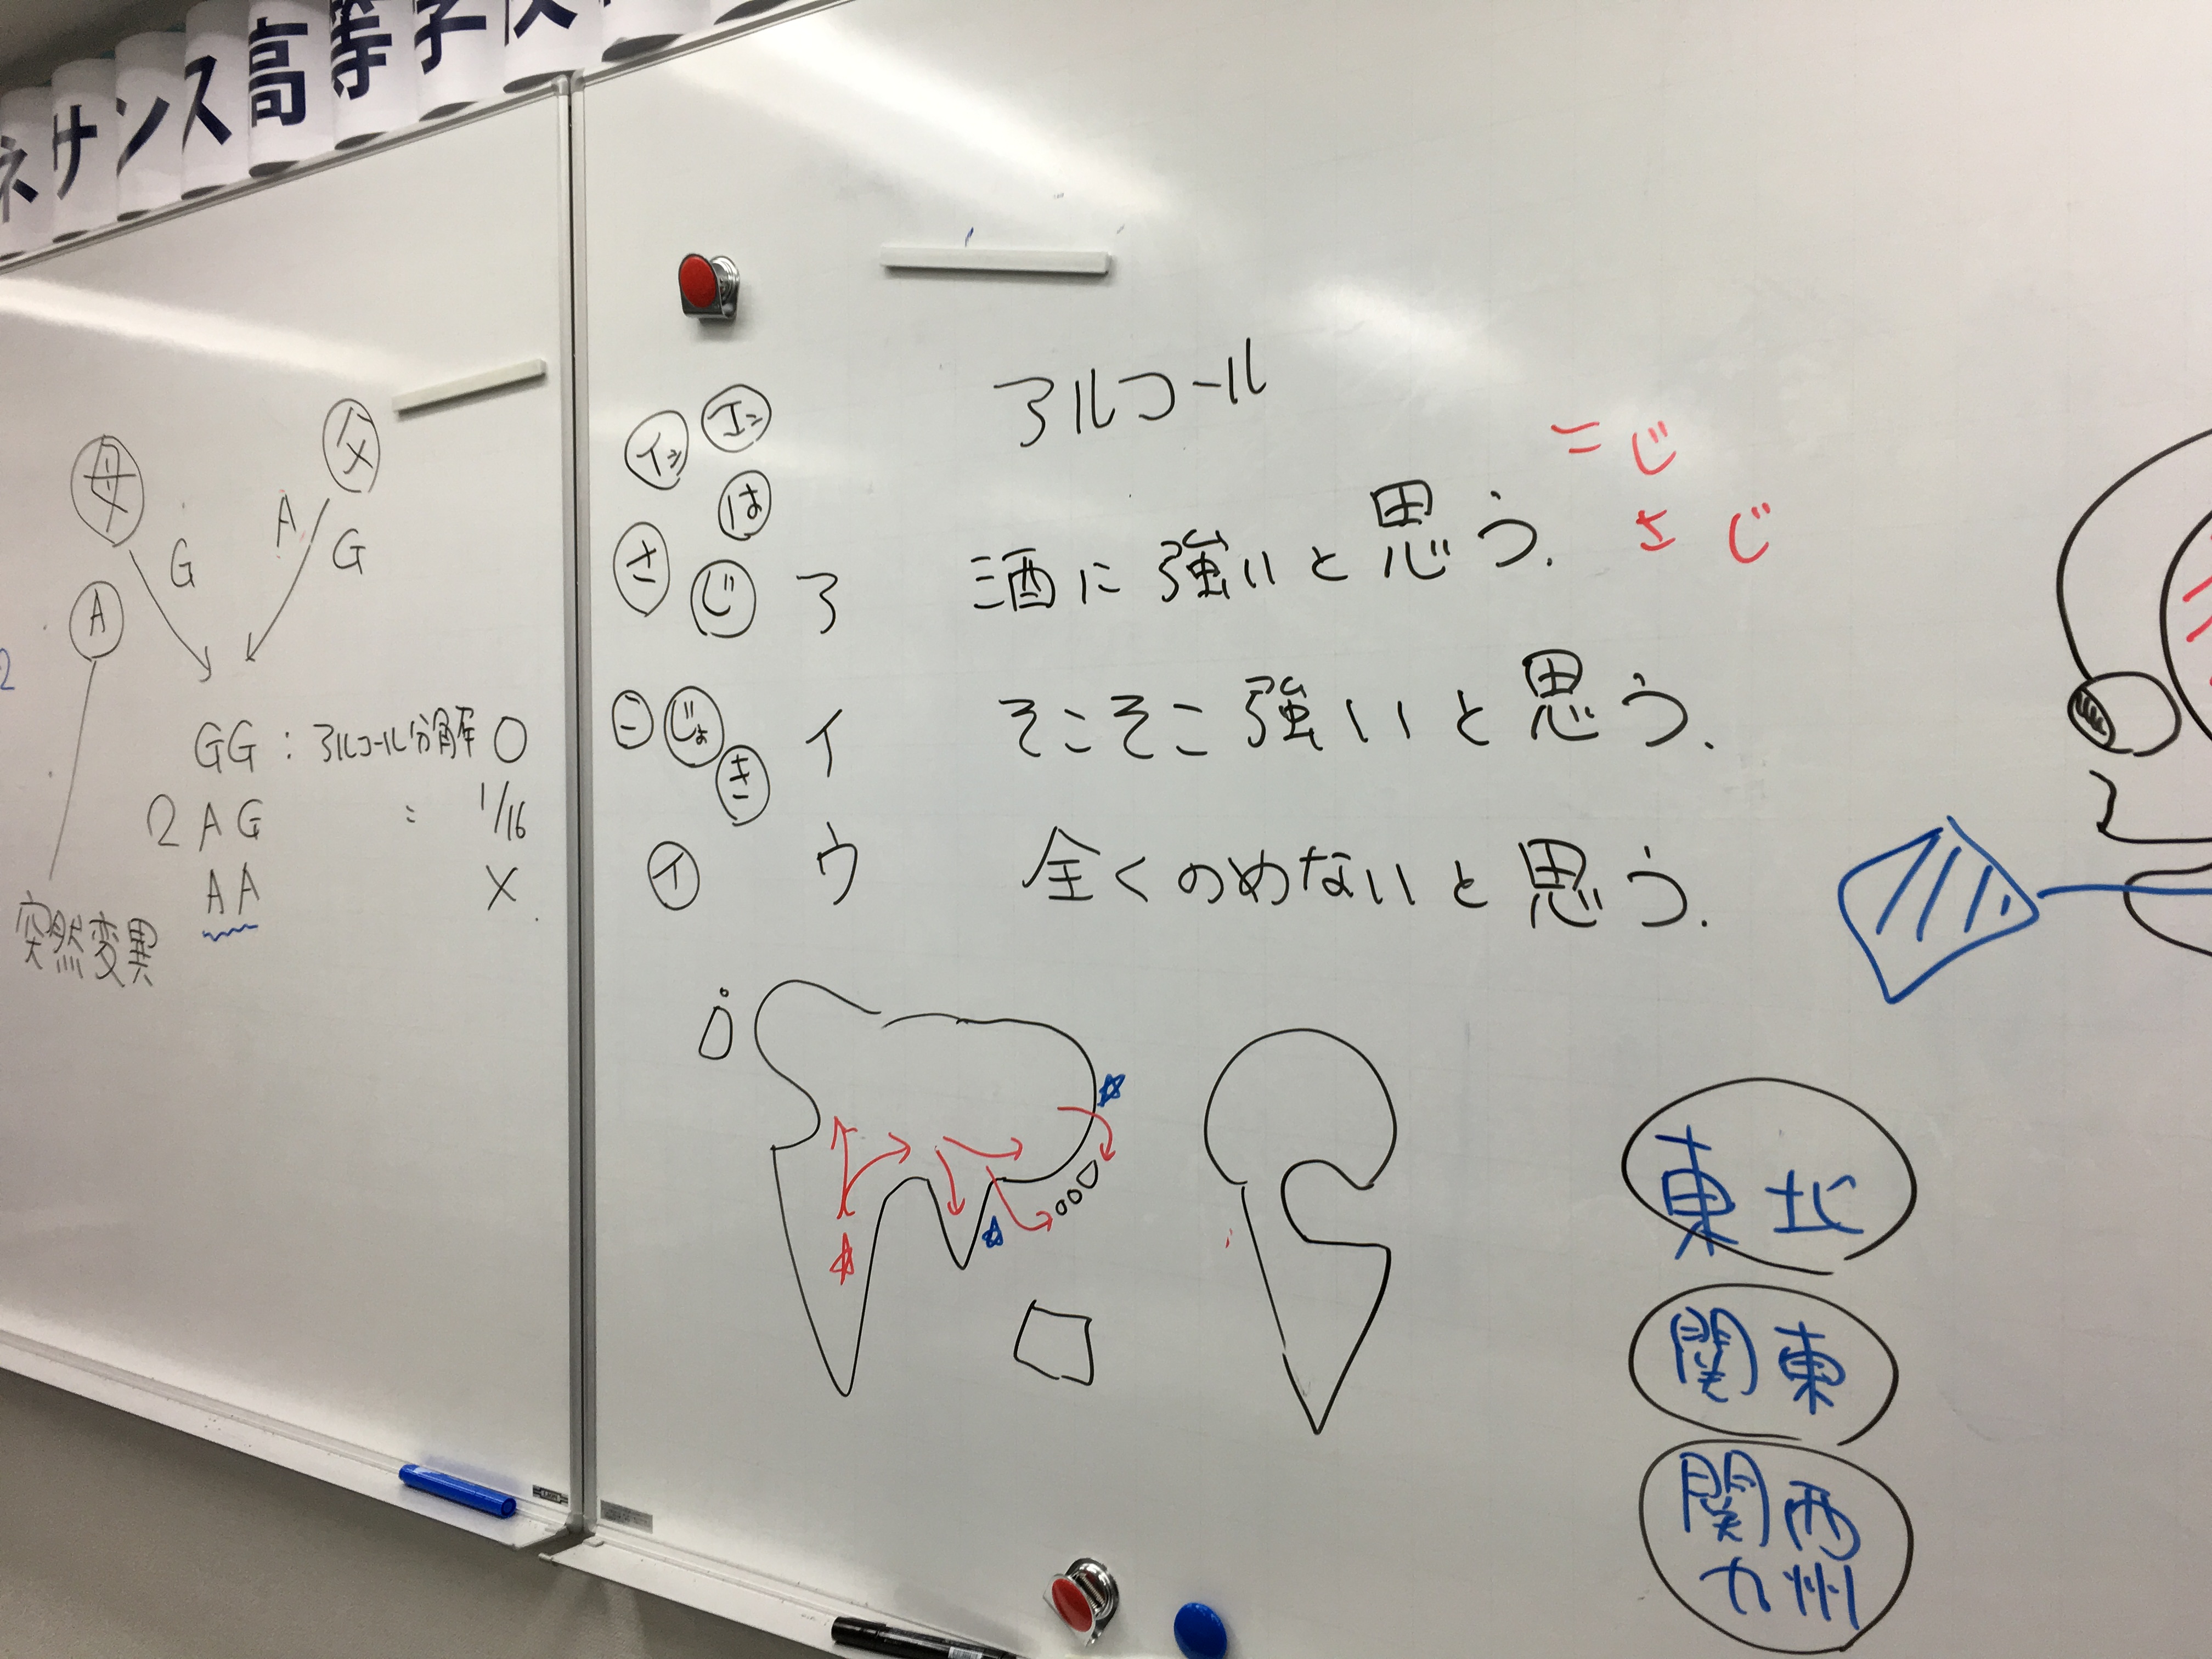 ネサンス高等学校
母 父
G A G
A
GG : アルコール分解 ○
2 AG 〃 1/16
AA ×
突然変異
2
アルコール
イ エ
は
さ じ
こ じょ き
イ
こ じ
さ じ
ア 酒に強いと思う.
イ そこそこ強いと思う.
ウ 全くのめないと思う.
東北
関東
関西
九州